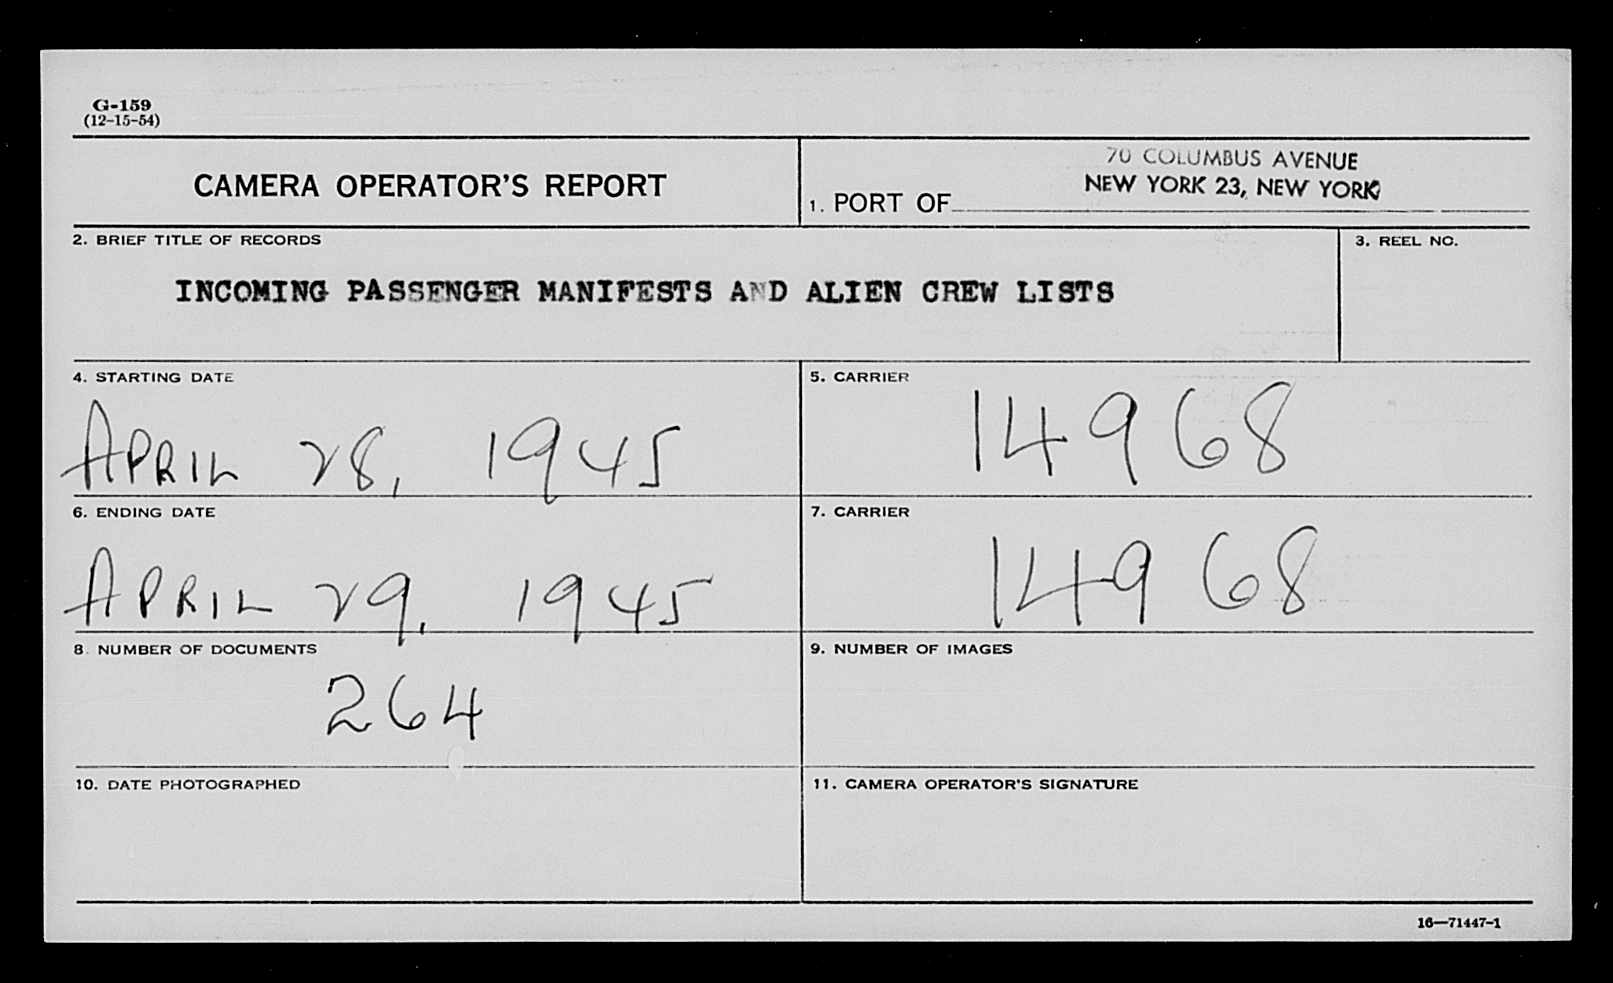 G-159
(12-15-54)
CAMERA OPERATOR'S REPORT
70 COLUMBUS AVENUE
NEW YORK 23, NEW YORK
1. PORT OF
2. BRIEF TITLE OF RECORDS
3. REEL NO.
INCOMING PASSENGER MANIFESTS AND ALIEN CREW LISTS
4. STARTING DATE
APRIL 28, 1945
5. CARRIER
14968
6. ENDING DATE
APRIL 29, 1945
7. CARRIER
14968
8. NUMBER OF DOCUMENTS
264
9. NUMBER OF IMAGES
10. DATE PHOTOGRAPHED
11. CAMERA OPERATOR'S SIGNATURE
16—71447-1